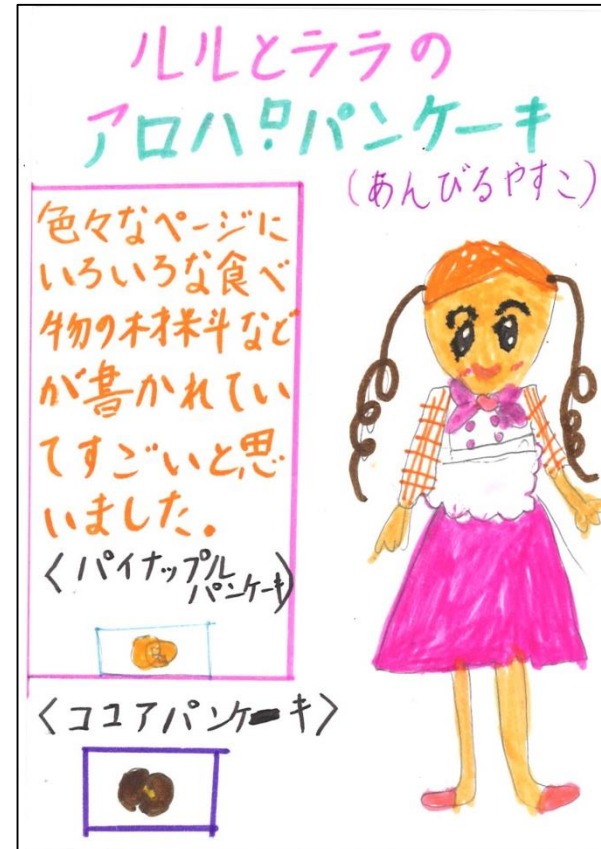 ルルとララの
アロハ!パンケーキ
(あんびるやすこ)
色々なページに
いろいろな食べ
物の材料など
が書かれてい
てすごいと思
いました。
〈パイナップル
パンケーキ〉
〈ココアパンケーキ〉